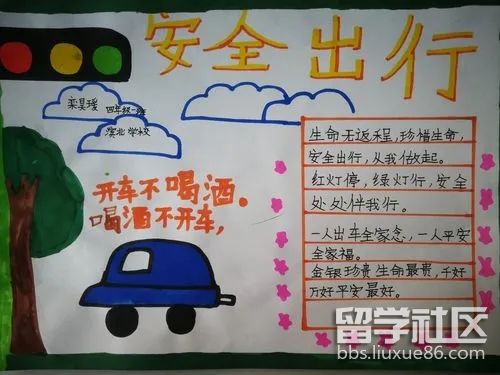 安全出行
栾昊瑶 四年级一班
滨北学校
开车不喝酒。
喝酒不开车,
生命无返程,珍惜生命,
安全出行,从我做起。
红灯停,绿灯行,安全
处处伴我行。
一人出车全家念,一人平安
全家福。
金银珍贵生命最贵,千好
万好平安最好。
留学社区
bbs.liuxue86.com